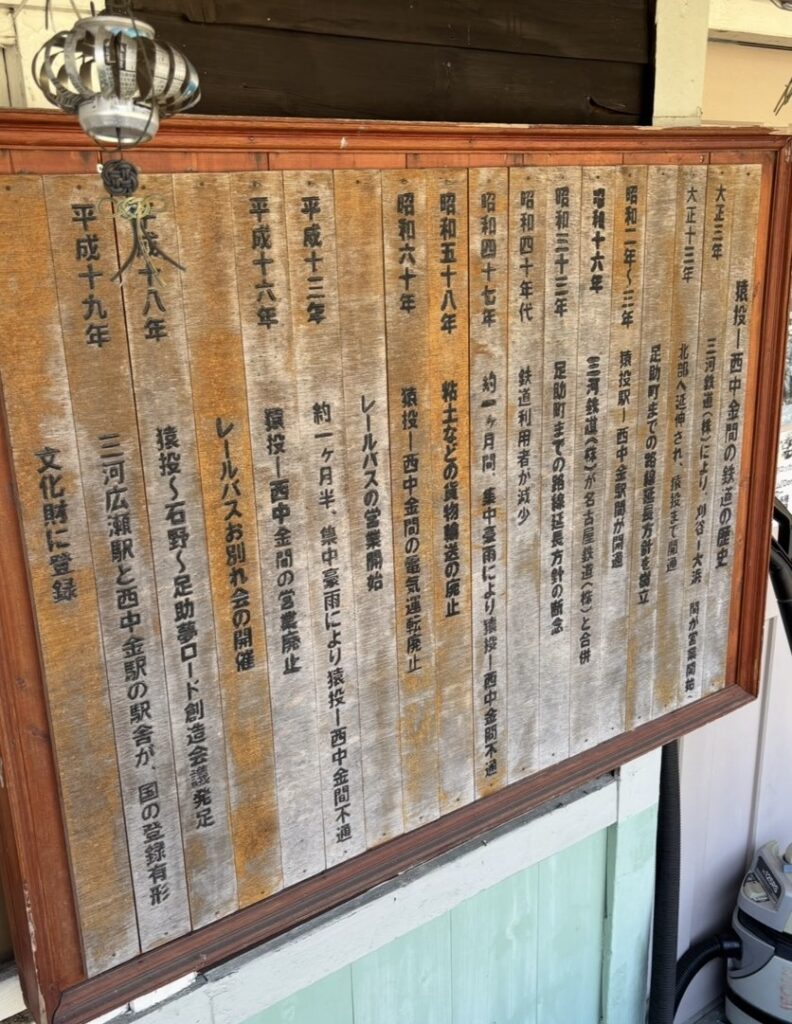 猿投ー西中金間の鉄道の歴史
大正三年 三河鉄道(株)により、刈谷ー大浜 間が営業開始、
大正十三年 北部へ延伸され、猿投まで開通
足助町までの路線延長方針を樹立
昭和二年〜三年 猿投駅ー西中金駅間が開通
昭和十六年 (三河鉄道(株)が名古屋鉄道(株)と合併
昭和三十三年 足助町までの路線延長方針の断念
昭和四十年代 鉄道利用者が減少
昭和四十七年 約一ヶ月間、集中豪雨により猿投ー西中金間不通
昭和五十八年 粘土などの貨物輸送の廃止
昭和六十年 猿投ー西中金間の電気運転廃止
レールバスの営業開始
平成十二年 約一ヶ月半、集中豪雨により猿投ー西中金間不通
平成十六年 猿投ー西中金間の営業廃止
レールバスお別れ会の開催
平成十八年 猿投〜石野〜足助夢ロード創造会議発足
平成十九年 三河広瀬駅と西中金駅の駅舎が、国の登録有形
文化財に登録